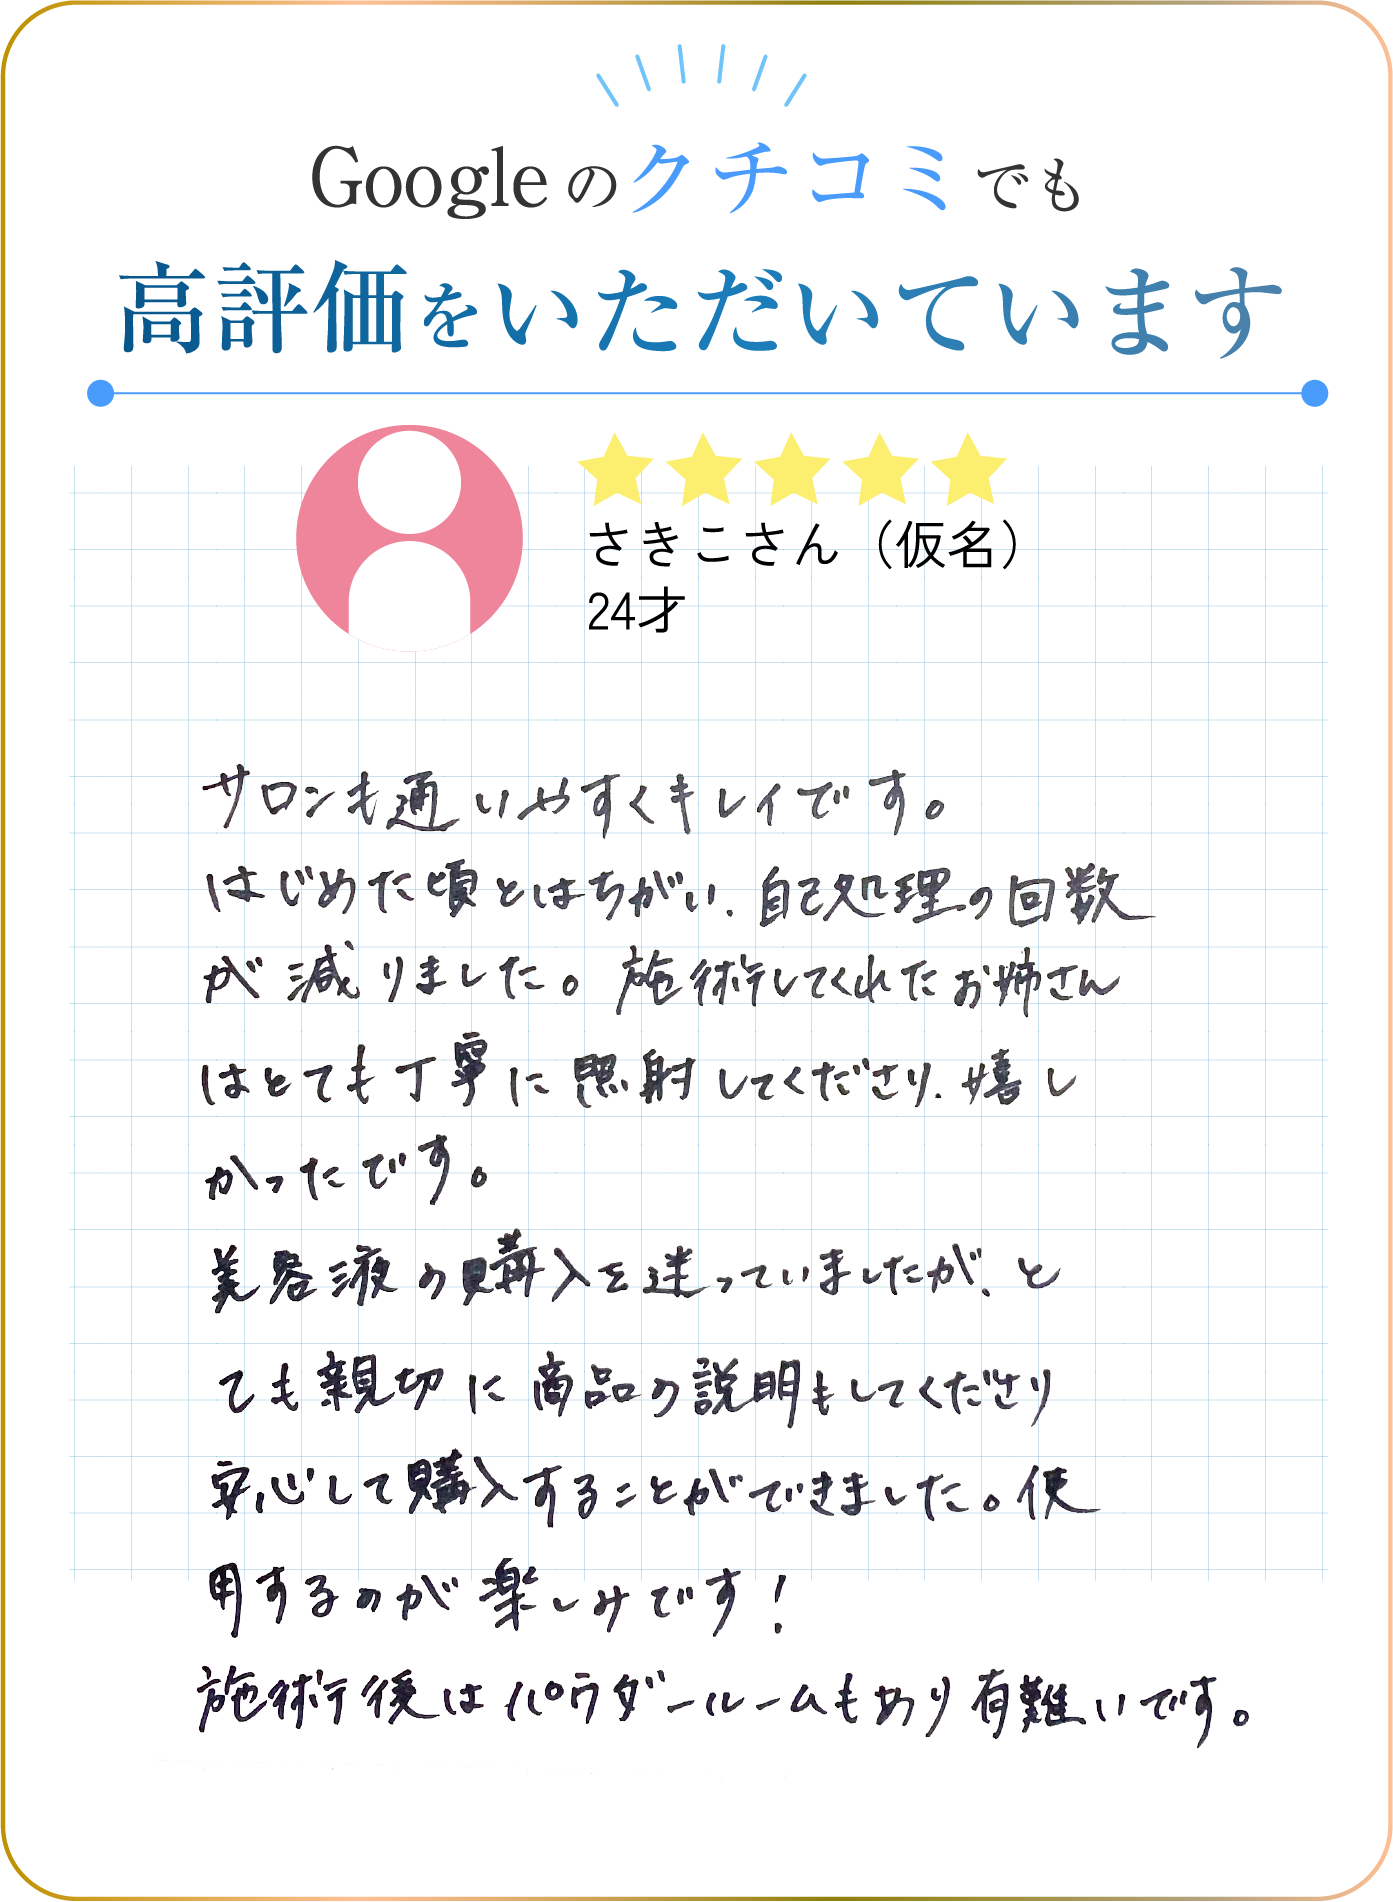 Googleのクチコミでも
高評価をいただいています
さきこさん（仮名）
24才
サロンも通いやすくキレイです。
はじめた頃とはちがい、自己処理の回数
が減りました。施術してくれたお姉さん
はとても丁寧に照射してくださり、嬉し
かったです。
美容液の購入を迷っていましたが、と
ても親切に商品の説明もしてくださり
安心して購入することができました。使
用するのが楽しみです！
施術後はパウダールームもあり有難いです。